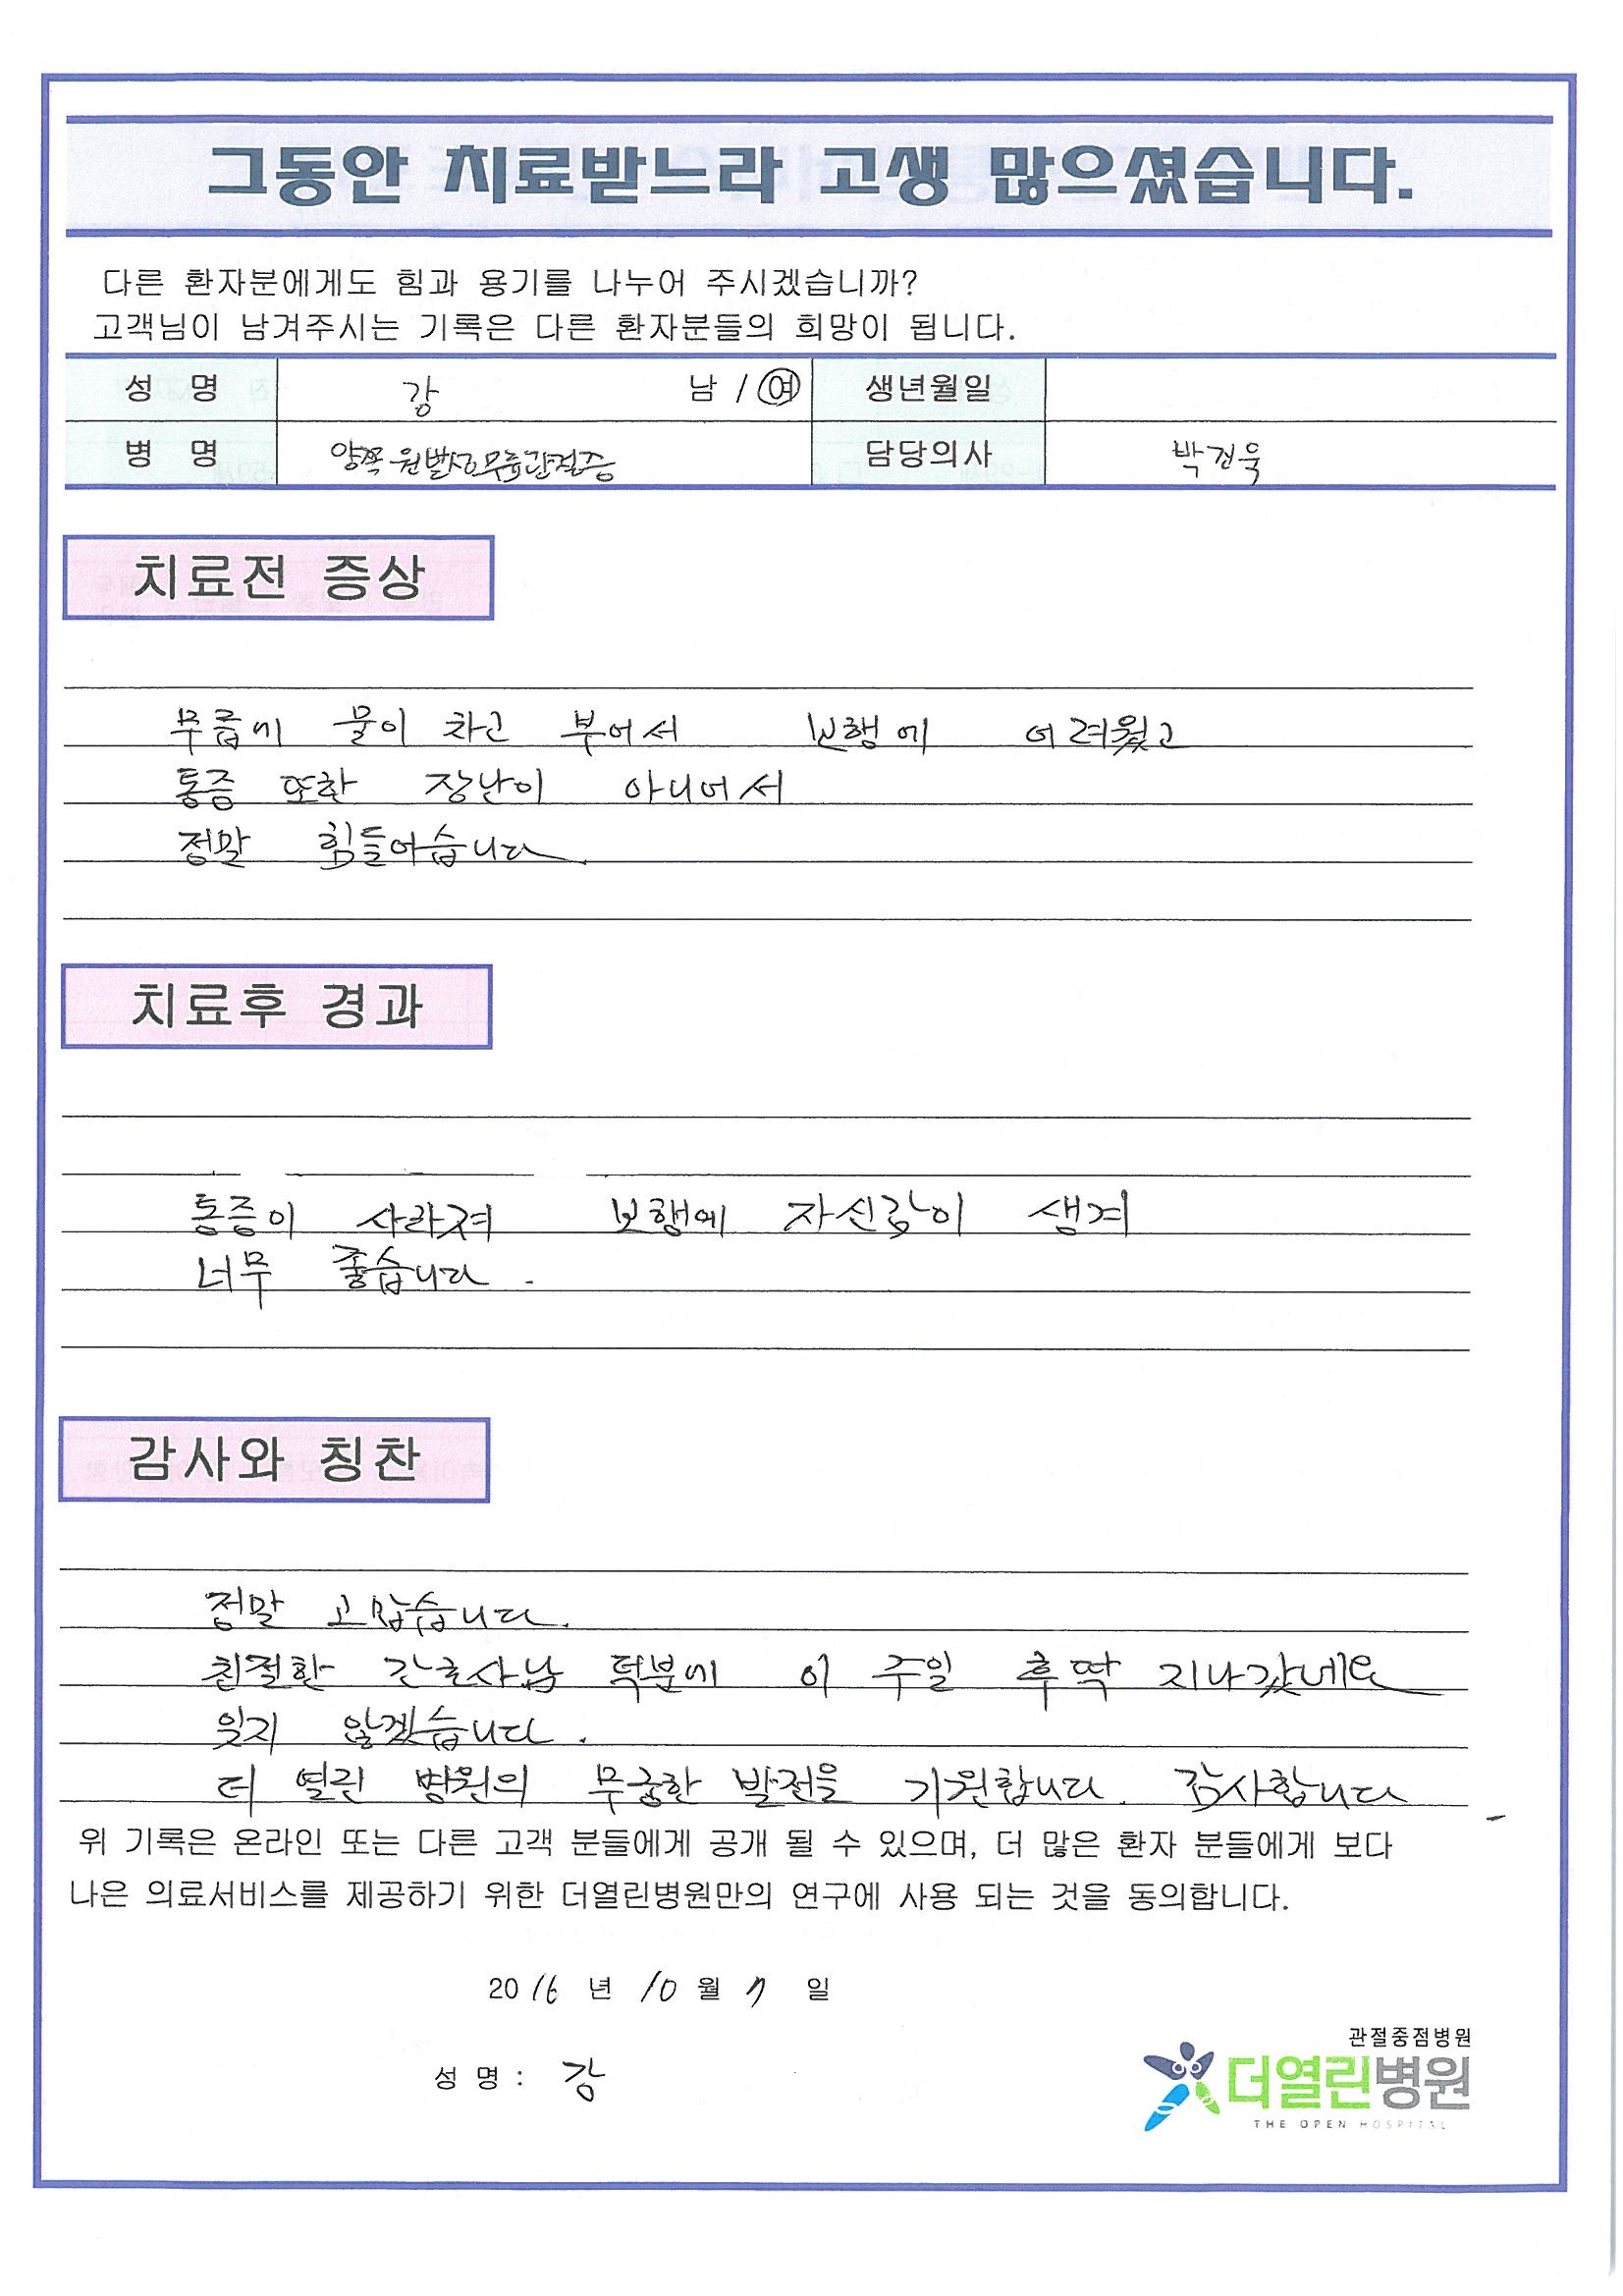 그동안 치료받느라 고생 많으셨습니다.
다른 환자분에게도 힘과 용기를 나누어 주시겠습니까?
고객님이 남겨주시는 기록은 다른 환자분들의 희망이 됩니다.
성 명 강 남 / 여 생년월일
병 명 양쪽 원발성무릎관절증 담당의사 박건욱
치료전 증상
무릎에 물이 차고 부어서 보행에 어려웠고
통증 또한 장난이 아니어서
정말 힘들어습니다.
치료후 경과
통증이 사라져 보행에 자신감이 생겨
너무 좋습니다.
감사와 칭찬
정말 고맙습니다.
친절한 간호사님 덕분에 이 주일 후딱 지나갔네요
잊지 않겠습니다.
더 열린 병원의 무궁한 발전을 기원합니다. 감사합니다
위 기록은 온라인 또는 다른 고객 분들에게 공개 될 수 있으며, 더 많은 환자 분들에게 보다
나은 의료서비스를 제공하기 위한 더열린병원만의 연구에 사용 되는 것을 동의합니다.
2016 년 10 월 7 일
관절중점병원
성 명 : 강
더열린병원
THE OPEN HOSPITAL